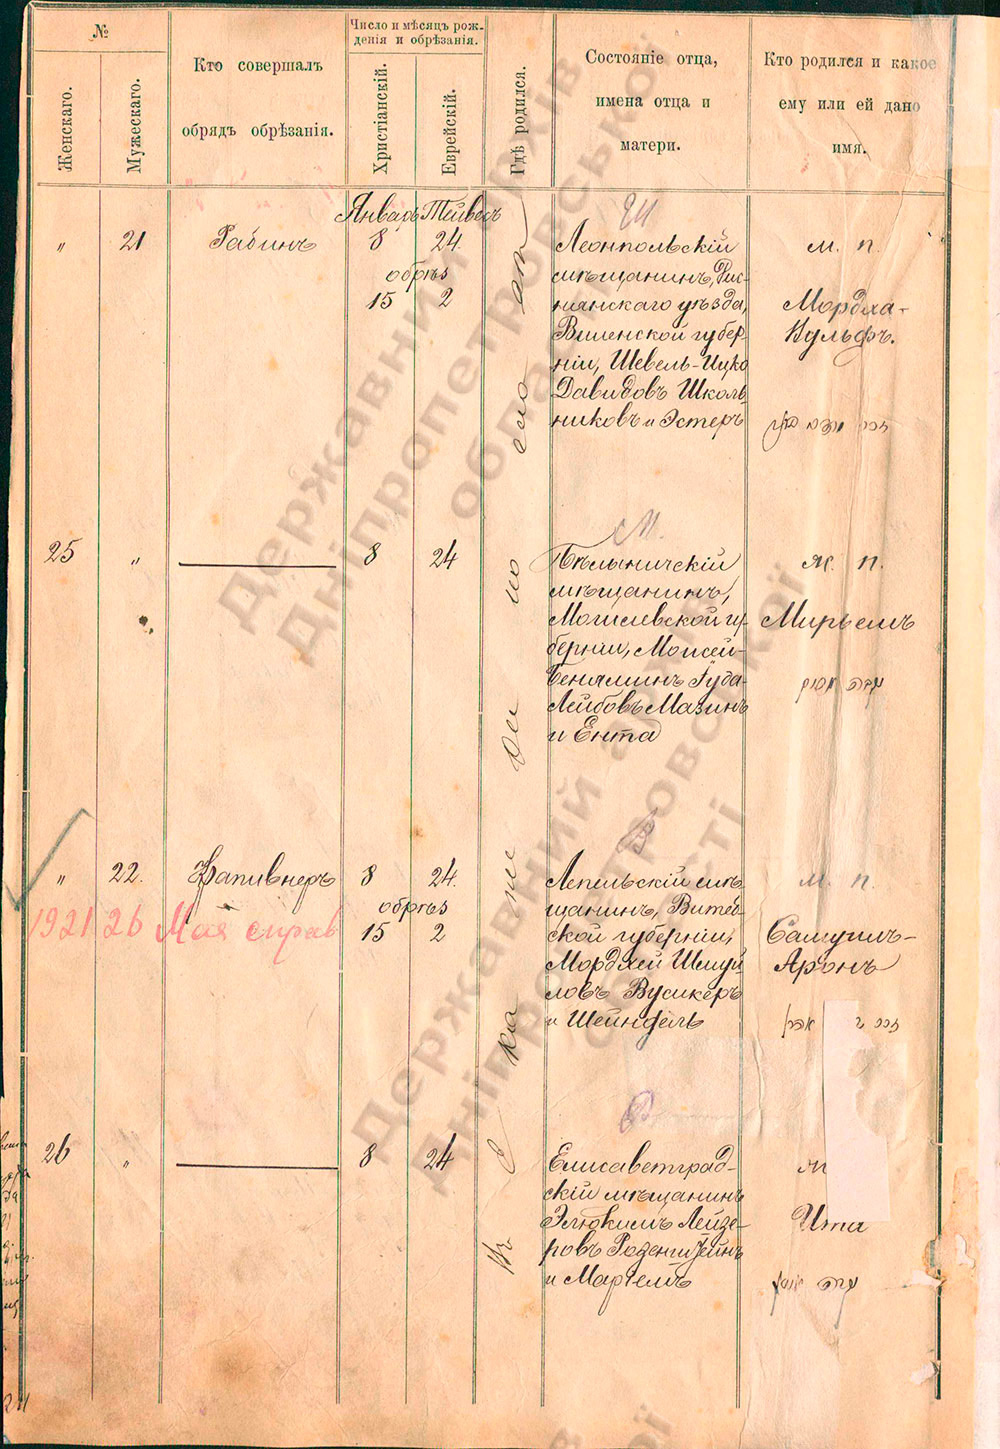 №
Женскаго.
Мужескаго.
Кто совершалъ
обрядъ обрѣзанія.
Число и мѣсяцъ рож-
денія и обрѣзанія.
Христіанскій.
Еврейскій.
Гдѣ родился.
Состояніе отца,
имена отца и
матери.
Кто родился и какое
ему или ей дано
имя.
Январь Тейвесъ
Ш
„ 21 Рабинъ 8 24.
обрѣз
15 2
Леонпольскій
мѣщанинъ,
нянскаго уѣзда,
Виленской губер-
ніи, Шевель-Ицко
Давидовъ Школь-
никовъ и Эстеръ
м. п.
Мордха-
Вульфъ.
Въ Екатеринославѣ
25 „ 8 24
М.
Бѣлыничскій
мѣщанинъ,
Могилевской гу-
берніи, Моисей-
Беніаминъ Іуда-
Лейбовъ Мазинъ
и Ента
ж. п.
Мирьемъ
„ 22. Капивнеръ 8 24.
обрѣз
15 2
1921 26 Мая справ
Лепельскій мѣ-
щанинъ, Витеб-
ской губерніи,
Мордхей Шмуй-
ловъ Вусикеръ
и Шейндель
м. п.
Самуилъ-
Аронъ
26 „ 8 24
Р
Елисаветград-
скій мѣщанинъ
Элюкимъ Лейзе-
ровъ Розенштейнъ
и Маріемъ
Ита
Державний архів
Дніпропетровської
області
Державний архів
Дніпропетровської
області